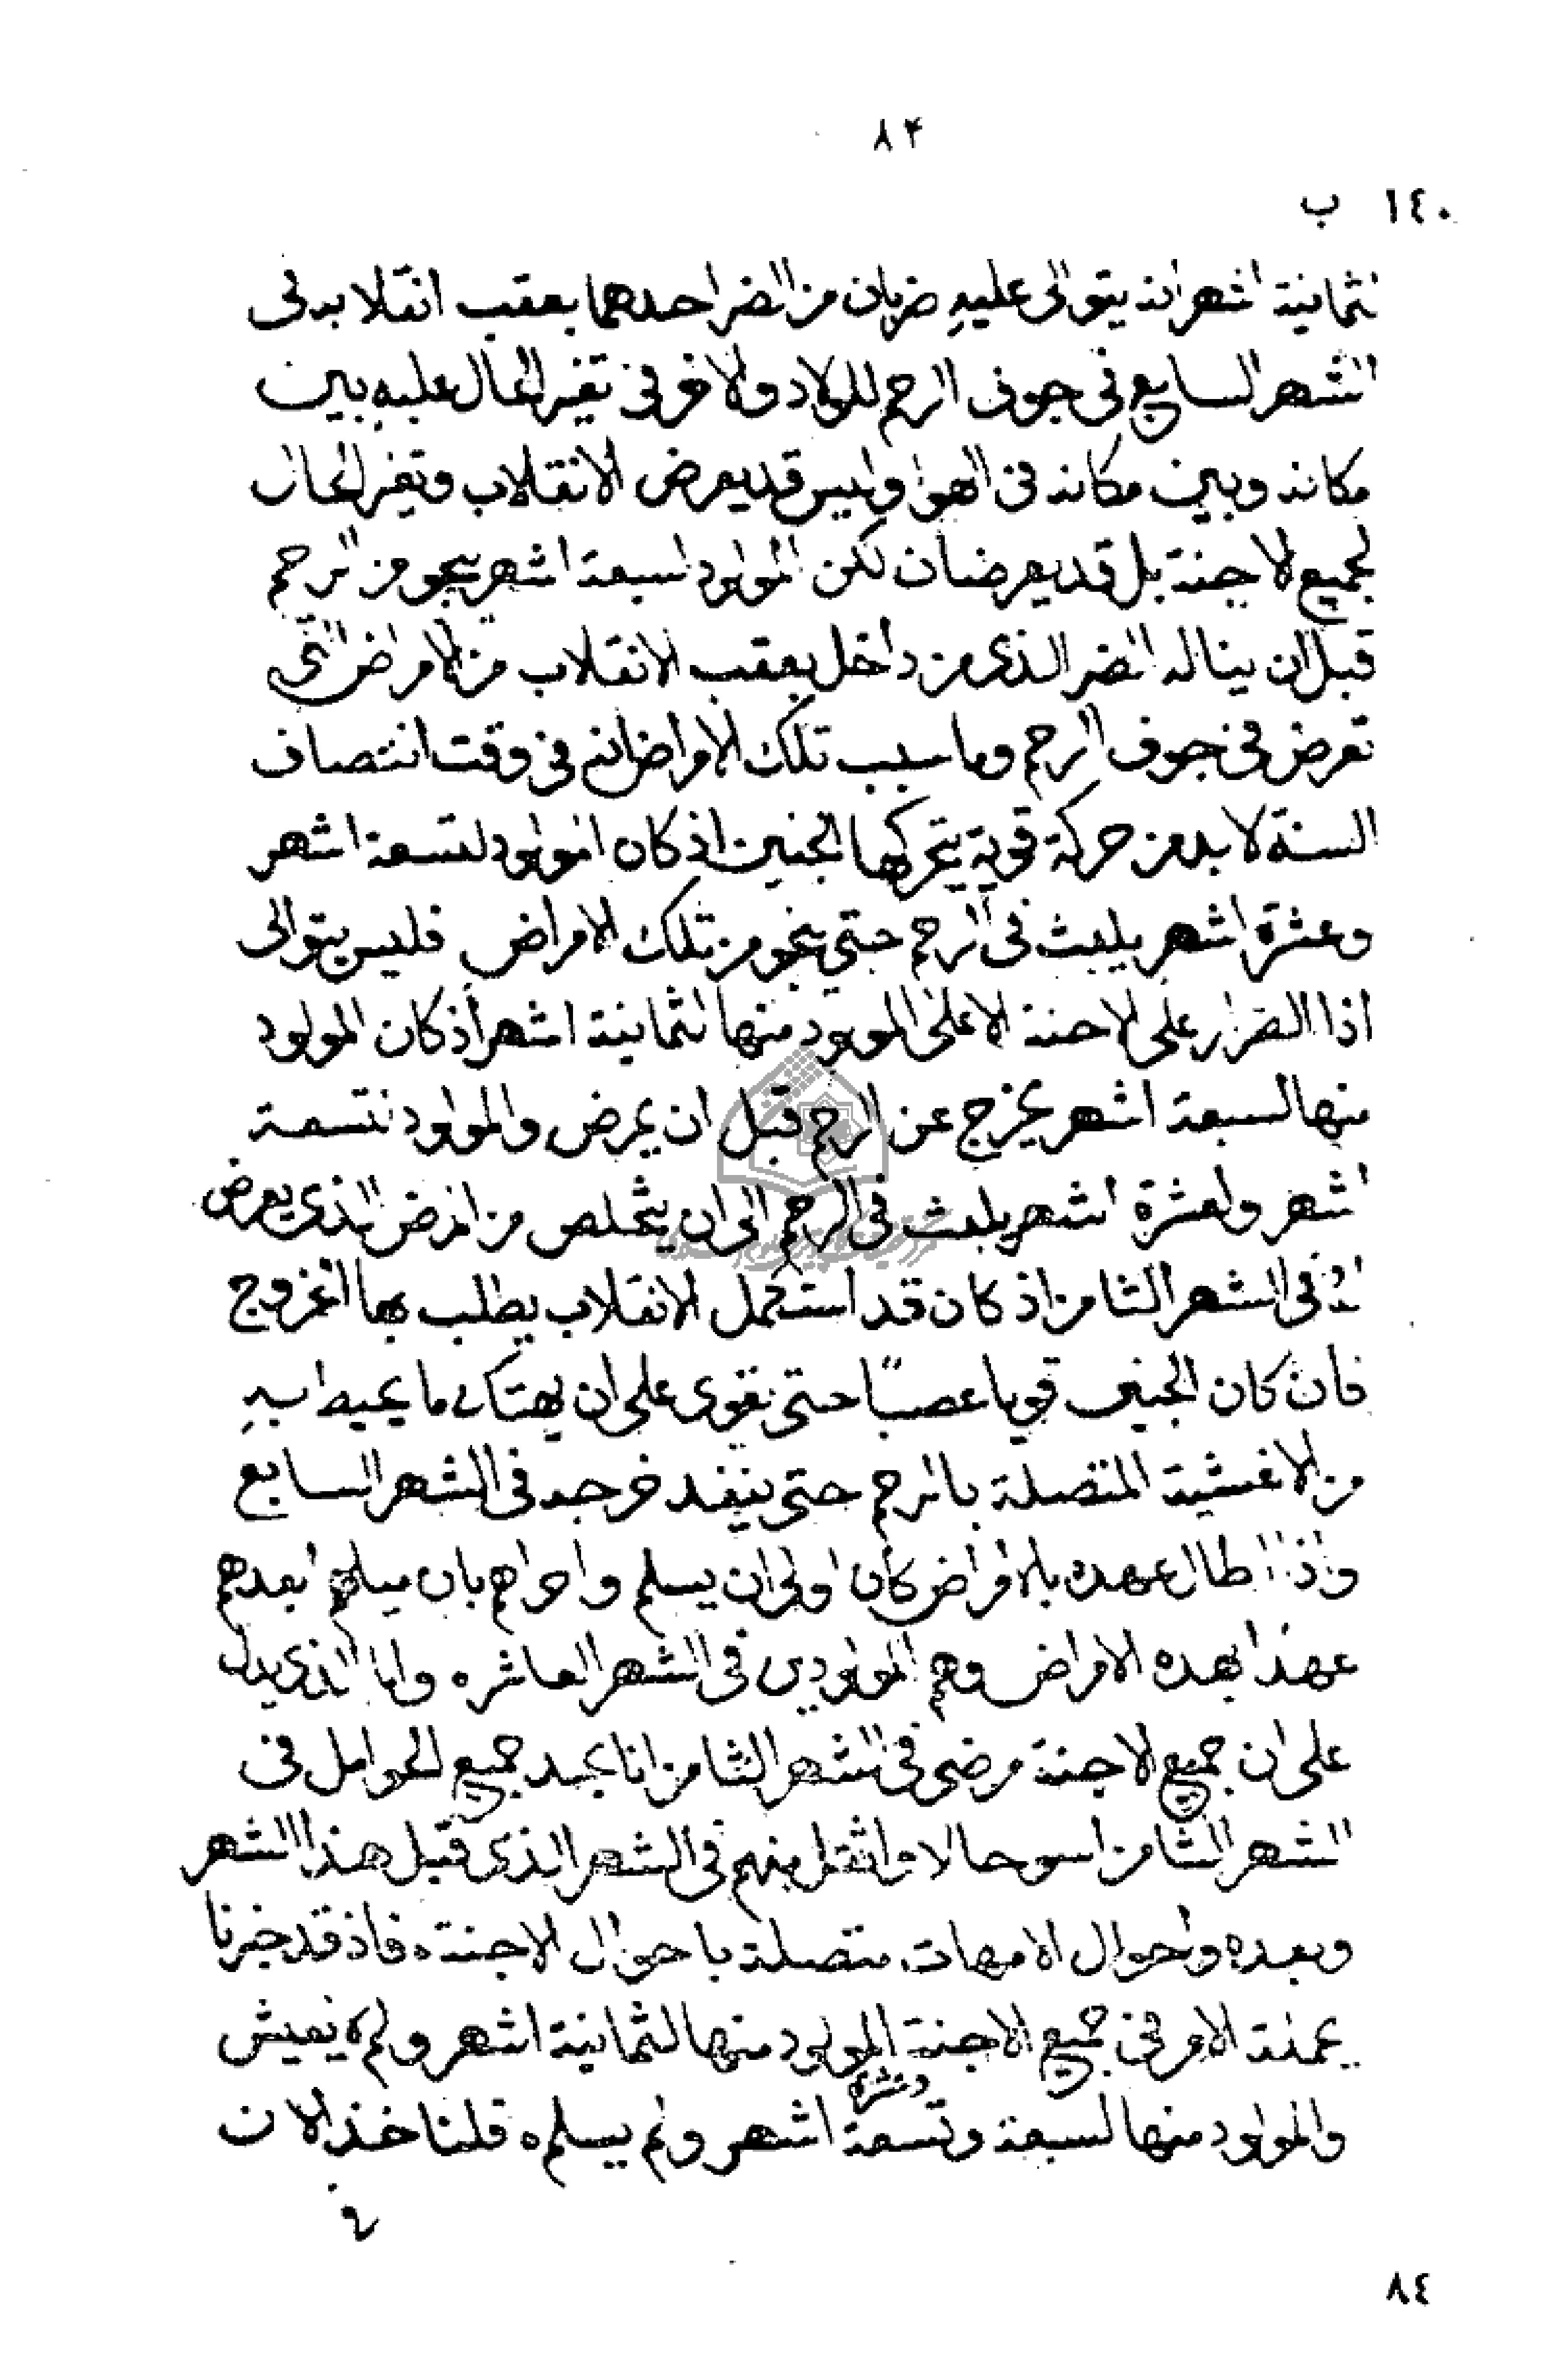 ٨٤
١٤٠ ب
لثمانية اشهر انه يتوالى عليه ضربان من الضر احدهما بعقب انقلابه فى
الشهر السابع فى جوف الرحم للولاد والاخر فى تغير الحال عليه بين
مكانه وبين مكانه فى الهوا وليس قد يعرض الانقلاب وتغير الحال
لجميع الاجنة بل قد يعرضان لكن المولود لسبعة اشهر ينجو من الرحم
قبل ان يناله الضر الذى من داخل بعقب الانقلاب من الامراض التى
تعرض فى جوف الرحم وما سبب تلك الامراض انه فى وقت انتصاف
السنة لا بد من حركة قوية يتحركها الجنين اذ كان المولود لتسعة اشهر
وعشرة اشهر يلبث فى الرحم حتى ينجو من تلك الامراض فليس يتوالى
اذا الضرار على الاجنة الا على المولود منها لثمانية اشهر اذ كان المولود
منها لسبعة اشهر يخرج عن الرحم قبل ان يمرض والمولود لتسعة
اشهر ولعشرة اشهر يلبث فى الرحم الى ان يتخلص من المرض الذى يعرض
له فى الشهر الثامن اذ كان قد استكمل الانقلاب يطلب بها الخروج
فان كان الجنين قويا عصبًا حتى يقوى على ان يهتك ما يحيط به
من الاغشية المتصلة بالرحم حتى ينفد خرجه فى الشهر السابع
واذا طال عهده بالامراض كان اولى ان يسلم واحراهم بان يسلم ابعدهم
عهدا بهده الامراض وهم المولودين فى الشهر العاشره وانا الذى يدل
على ان جميع الاجنة مرضى فى الشهر الثامن انا نجد جميع الحوامل فى
الشهر الثامن اسو حالا واثقل منهم فى الشهر الذى قبل هذا الشهر
وبعده واحوال الامهات متصلة باحوال الاجنة ه فاذ قد خبرنا
بمنة الامر فى جميع الاجنة المولود منها لثمانية اشهر ولم لا يعيش
والمولود منها لسبعة وتسعة وعشرة اشهر ولم يسلم ه قلنا خذ الان
فى
٨٤